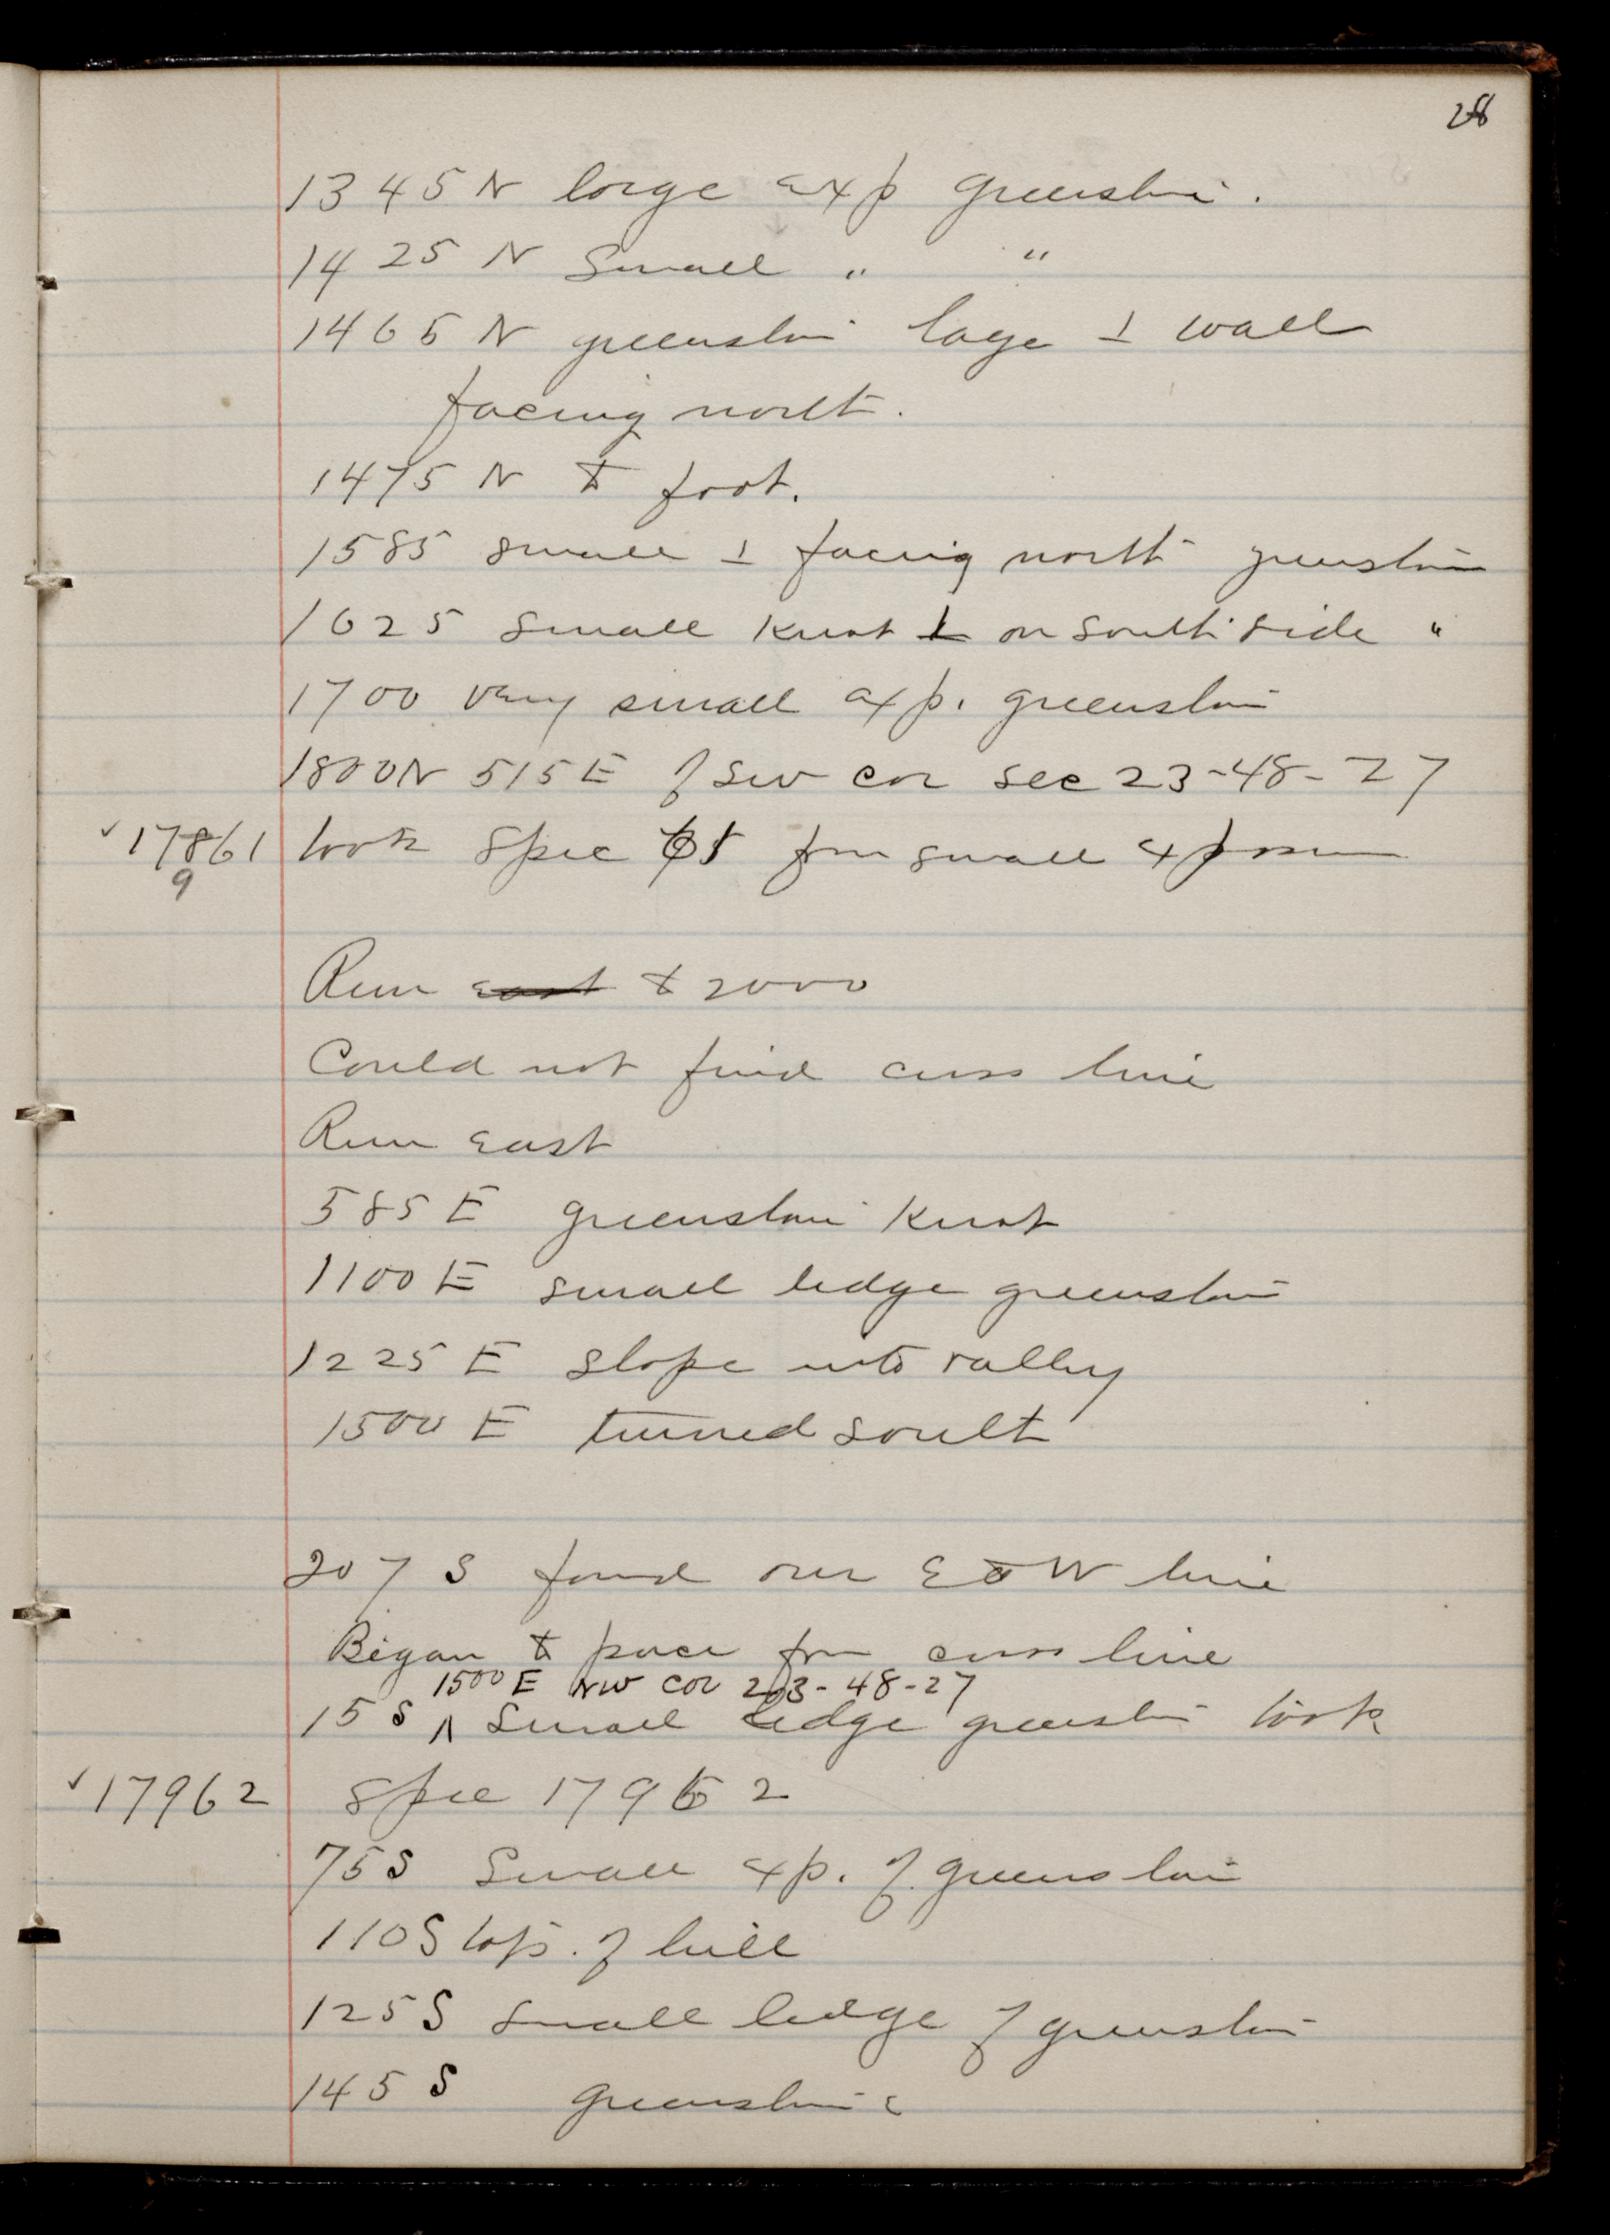 1345 N large exp greenstone.
1425 N Small " "
1465 N greenstone large ⊥ wall
facing north.
1475 N to foot.
1585 small ⊥ facing north greenstone
1625 small knob ⊥ on south side "
1700 very small exp. greenstone
1800N 515 E of SW cor sec 23-48-27
✓17861 took spec from small exposure
9
Run east to 2000
Could not find cross line
Run east
585 E greenstone knob
1100 E small ledge greenstone
1225 E slope into valley
1500 E turned south
207 S found our E & W line
Began to pace from cross line
1500 E NW cor 23-48-27
15 S ∧ Small ledge greenstone took
✓17962 spec 17962
75 S Small exp. of greenstone
110 S top. of hill
125 S small ledge of greenstone
145 S greenstone